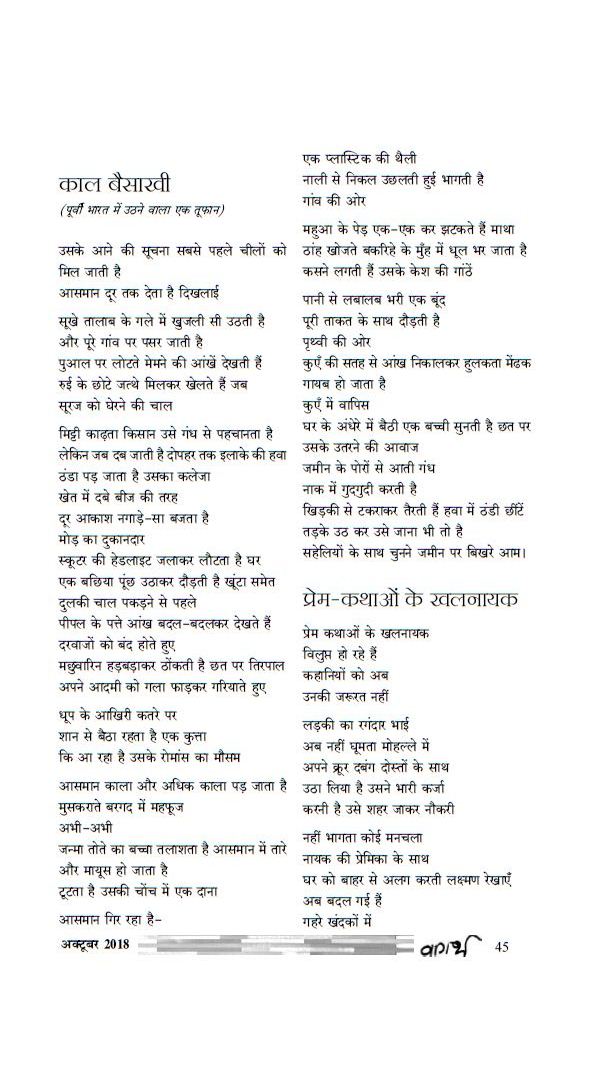 काल बैसाखी
(पूर्वी भारत में उठने वाला एक तूफान)
उसके आने की सूचना सबसे पहले चीलों को
मिल जाती है
आसमान दूर तक देता है दिखलाई
सूखे तालाब के गले में खुजली सी उठती है
और पूरे गांव पर पसर जाती है
पुआल पर लोटते मेमने की आंखें देखती हैं
रुई के छोटे जत्थे मिलकर खेलते हैं जब
सूरज को घेरने की चाल
मिट्टी काढ़ता किसान उसे गंध से पहचानता है
लेकिन जब दब जाती है दोपहर तक इलाके की हवा
ठंडा पड़ जाता है उसका कलेजा
खेत में दबे बीज की तरह
दूर आकाश नगाड़े-सा बजता है
मोड़ का दुकानदार
स्कूटर की हेडलाइट जलाकर लौटता है घर
एक बछिया पूंछ उठाकर दौड़ती है खूंटा समेत
दुलकी चाल पकड़ने से पहले
पीपल के पत्ते आंख बदल-बदलकर देखते हैं
दरवाजों को बंद होते हुए
मछुवारिन हड़बड़ाकर ठोंकती है छत पर तिरपाल
अपने आदमी को गला फाड़कर गरियाते हुए
धूप के आखिरी कतरे पर
शान से बैठा रहता है एक कुत्ता
कि आ रहा है उसके रोमांस का मौसम
आसमान काला और अधिक काला पड़ जाता है
मुसकराते बरगद में महफूज
अभी-अभी
जन्मा तोते का बच्चा तलाशता है आसमान में तारे
और मायूस हो जाता है
टूटता है उसकी चोंच में एक दाना
आसमान गिर रहा है-
एक प्लास्टिक की थैली
नाली से निकल उछलती हुई भागती है
गांव की ओर
महुआ के पेड़ एक-एक कर झटकते हैं माथा
ठांह खोजते बकरिहे के मुँह में धूल भर जाता है
कसने लगती हैं उसके केश की गांठें
पानी से लबालब भरी एक बूंद
पूरी ताकत के साथ दौड़ती है
पृथ्वी की ओर
कुएँ की सतह से आंख निकालकर हुलकता मेंढक
गायब हो जाता है
कुएँ में वापिस
घर के अंधेरे में बैठी एक बच्ची सुनती है छत पर
उसके उतरने की आवाज
जमीन के पोरों से आती गंध
नाक में गुदगुदी करती है
खिड़की से टकराकर तैरती हैं हवा में ठंडी छींटें
तड़के उठ कर उसे जाना भी तो है
सहेलियों के साथ चुनने जमीन पर बिखरे आम।
प्रेम-कथाओं के खलनायक
प्रेम कथाओं के खलनायक
विलुप्त हो रहे हैं
कहानियों को अब
उनकी जरूरत नहीं
लड़की का रगंदार भाई
अब नहीं घूमता मोहल्ले में
अपने क्रूर दबंग दोस्तों के साथ
उठा लिया है उसने भारी कर्जा
करनी है उसे शहर जाकर नौकरी
नहीं भागता कोई मनचला
नायक की प्रेमिका के साथ
घर को बाहर से अलग करती लक्ष्मण रेखाएँ
अब बदल गई हैं
गहरे खंदकों में
अक्टूबर 2018
वागर्थ 45